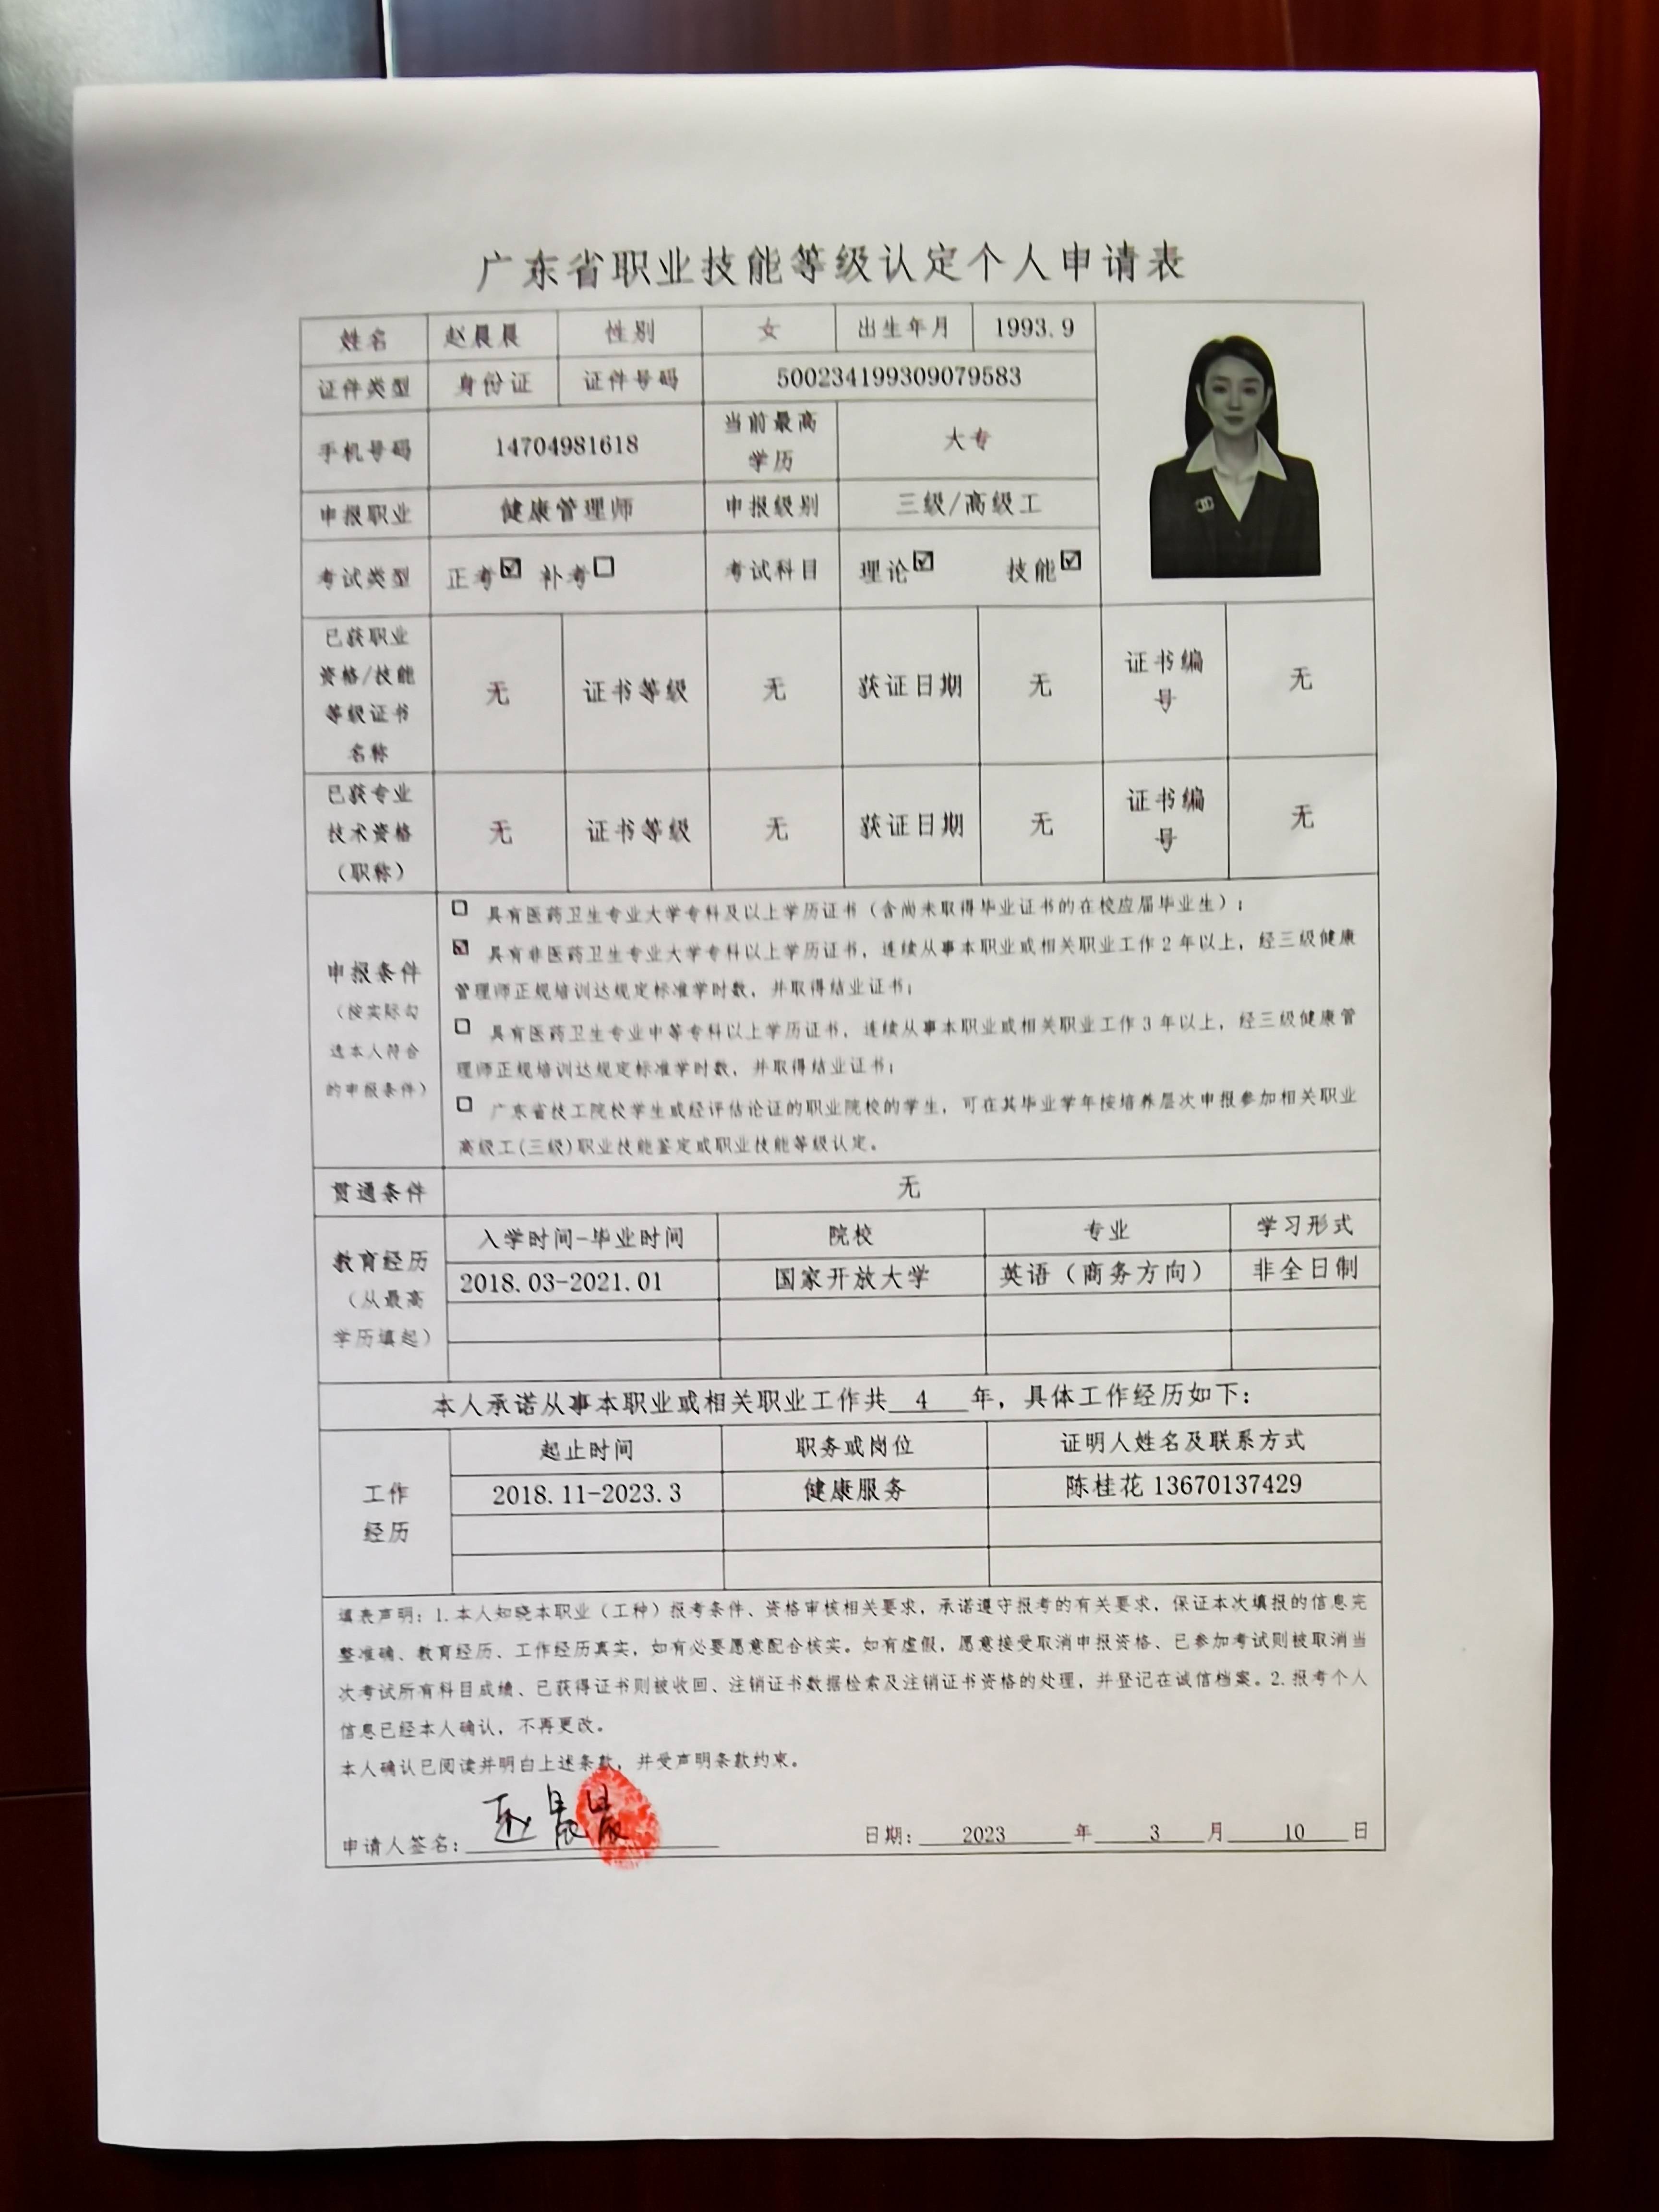 广东省职业技能等级认定个人申请表
姓名 赵晨晨 性别 女 出生年月 1993.9
证件类型 身份证 证件号码 500234199309079583
手机号码 14704981618 当前最高学历 大专
申报职业 健康管理师 申报级别 三级/高级工
考试类型 正考☑ 补考☐ 考试科目 理论☑ 技能☑
已获职业资格/技能等级证书名称 无 证书等级 无 获证日期 无 证书编号 无
已获专业技术资格（职称） 无 证书等级 无 获证日期 无 证书编号 无
申报条件（按实际勾选本人符合的申报条件）
☐ 具有医药卫生专业大学专科及以上学历证书（含尚未取得毕业证书的在校应届毕业生）；
☑ 具有非医药卫生专业大学专科以上学历证书，连续从事本职业或相关职业工作2年以上，经三级健康
管理师正规培训达规定标准学时数，并取得结业证书；
☐ 具有医药卫生专业中等专科以上学历证书，连续从事本职业或相关职业工作3年以上，经三级健康管
理师正规培训达规定标准学时数，并取得结业证书；
☐ 广东省技工院校学生或经评估论证的职业院校的学生，可在其毕业学年按培养层次申报参加相关职业
高级工(三级)职业技能鉴定或职业技能等级认定。
贯通条件 无
教育经历（从最高学历填起）
入学时间-毕业时间 院校 专业 学习形式
2018.03-2021.01 国家开放大学 英语（商务方向） 非全日制
本人承诺从事本职业或相关职业工作共 4 年，具体工作经历如下：
工作经历
起止时间 职务或岗位 证明人姓名及联系方式
2018.11-2023.3 健康服务 陈桂花 13670137429
填表声明：1.本人知晓本职业（工种）报考条件、资格审核相关要求，承诺遵守报考的有关要求，保证本次填报的信息完
整准确、教育经历、工作经历真实，如有必要愿意配合核实。如有虚假，愿意接受取消申报资格、已参加考试则被取消当
次考试所有科目成绩、已获得证书则被收回、注销证书数据检索及注销证书资格的处理，并登记在诚信档案。2.报考个人
信息已经本人确认，不再更改。
本人确认已阅读并明白上述条款，并受声明条款约束。
申请人签名： 赵晨晨 日期： 2023 年 3 月 10 日